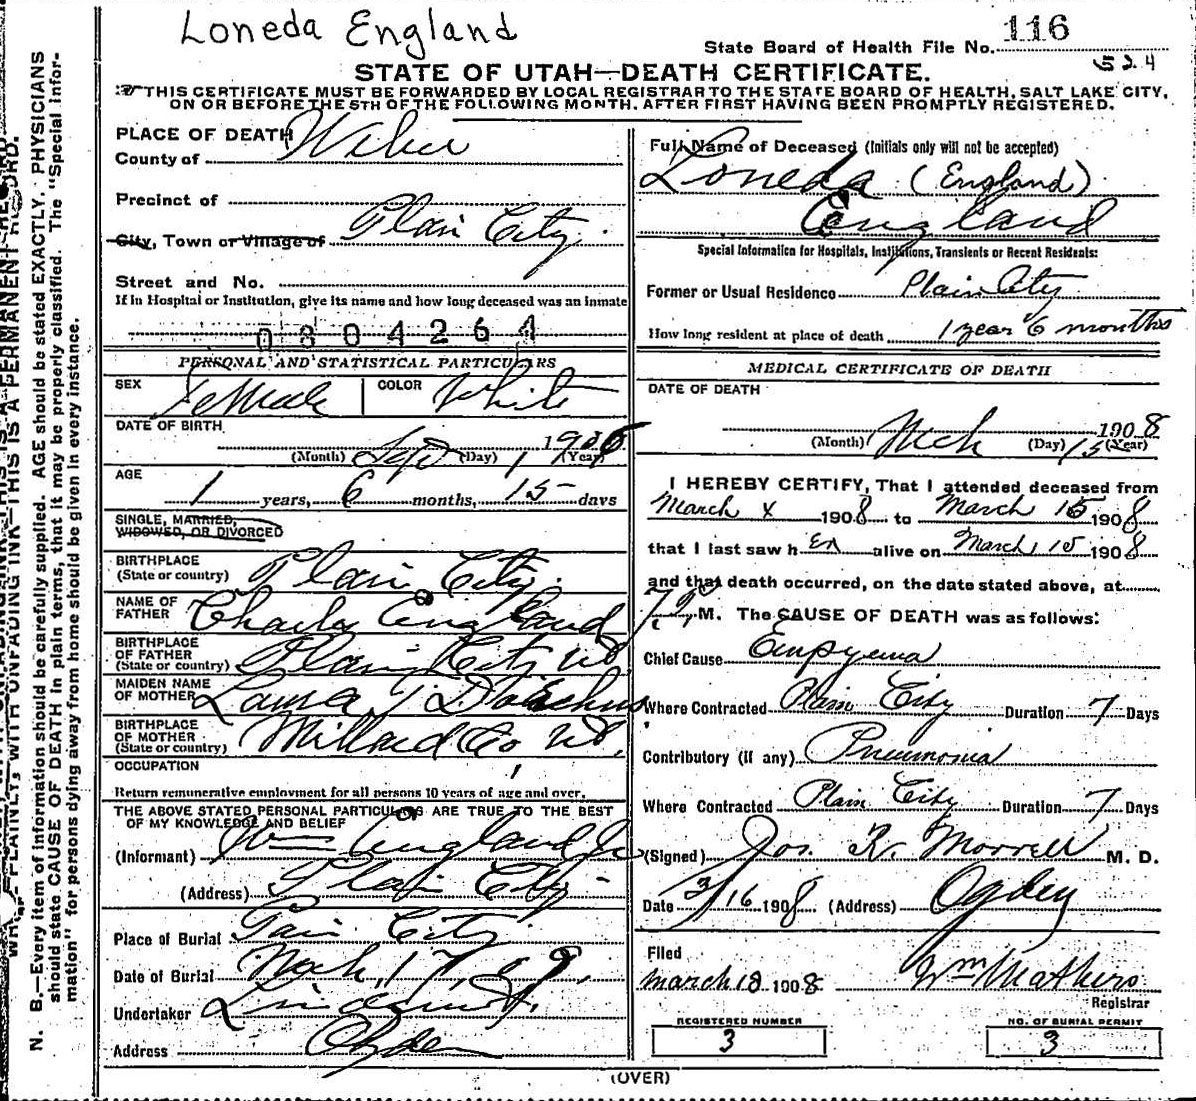 Loneda England
116
State Board of Health File No.
524
STATE OF UTAH—DEATH CERTIFICATE.
THIS CERTIFICATE MUST BE FORWARDED BY LOCAL REGISTRAR TO THE STATE BOARD OF HEALTH, SALT LAKE CITY,
ON OR BEFORE THE 5TH OF THE FOLLOWING MONTH. AFTER FIRST HAVING BEEN PROMPTLY REGISTERED.
PLACE OF DEATH
County of Weber
Precinct of
City, Town or Village of Plain City
Street and No.
If in Hospital or Institution, give its name and how long deceased was an inmate
0804264
PERSONAL AND STATISTICAL PARTICULARS
SEX Female COLOR White
DATE OF BIRTH
(Month) Sep (Day) 1 1906 (Year)
AGE
1 years, 6 months, 15 days
SINGLE, MARRIED,
WIDOWED, OR DIVORCED
BIRTHPLACE
(State or country) Plain City
NAME OF
FATHER Charles England
BIRTHPLACE
OF FATHER
(State or country) Plain City Ut
MAIDEN NAME
OF MOTHER Laura
BIRTHPLACE
OF MOTHER
(State or country) Millard Co Ut.
OCCUPATION
Return remunerative employment for all persons 10 years of age and over.
THE ABOVE STATED PERSONAL PARTICULARS ARE TRUE TO THE BEST
OF MY KNOWLEDGE AND BELIEF
(Informant) Wm England Jr
(Address) Plain City
Place of Burial Plain City
Date of Burial Mch, 17, 08,
Undertaker Lindquist,
Address Ogden
Full Name of Deceased (Initials only will not be accepted)
Loneda (England)
England
Special Information for Hospitals, Institutions, Transients or Recent Residents:
Former or Usual Residence Plain City
How long resident at place of death 1 year 6 months
MEDICAL CERTIFICATE OF DEATH
DATE OF DEATH
(Month) Mch (Day) 15 1908 (Year)
I HEREBY CERTIFY, That I attended deceased from
March 4 1908 to March 15 1908
that I last saw h er alive on March 15 1908
and that death occurred, on the date stated above, at
M. The CAUSE OF DEATH was as follows:
Chief Cause Empyema
Where Contracted Plain City Duration 7 Days
Contributory (if any) Pneumonia
Where Contracted Plain City Duration 7 Days
(Signed) Jos. R. Morrell M. D.
Date 3/16 1908 (Address) Ogden
Filed
March 18 1908 Wm Mathers
Registrar
REGISTERED NUMBER
3
NO. OF BURIAL PERMIT
3
(OVER)
N. B.—Every item of information should be carefully supplied. AGE should be stated EXACTLY. PHYSICIANS
should state CAUSE OF DEATH in plain terms, that it may be properly classified. The "Special Infor-
mation" for persons dying away from home should be given in every instance.
PLAINLY, WITH UNFADING INK—THIS IS A PERMANENT RECORD.